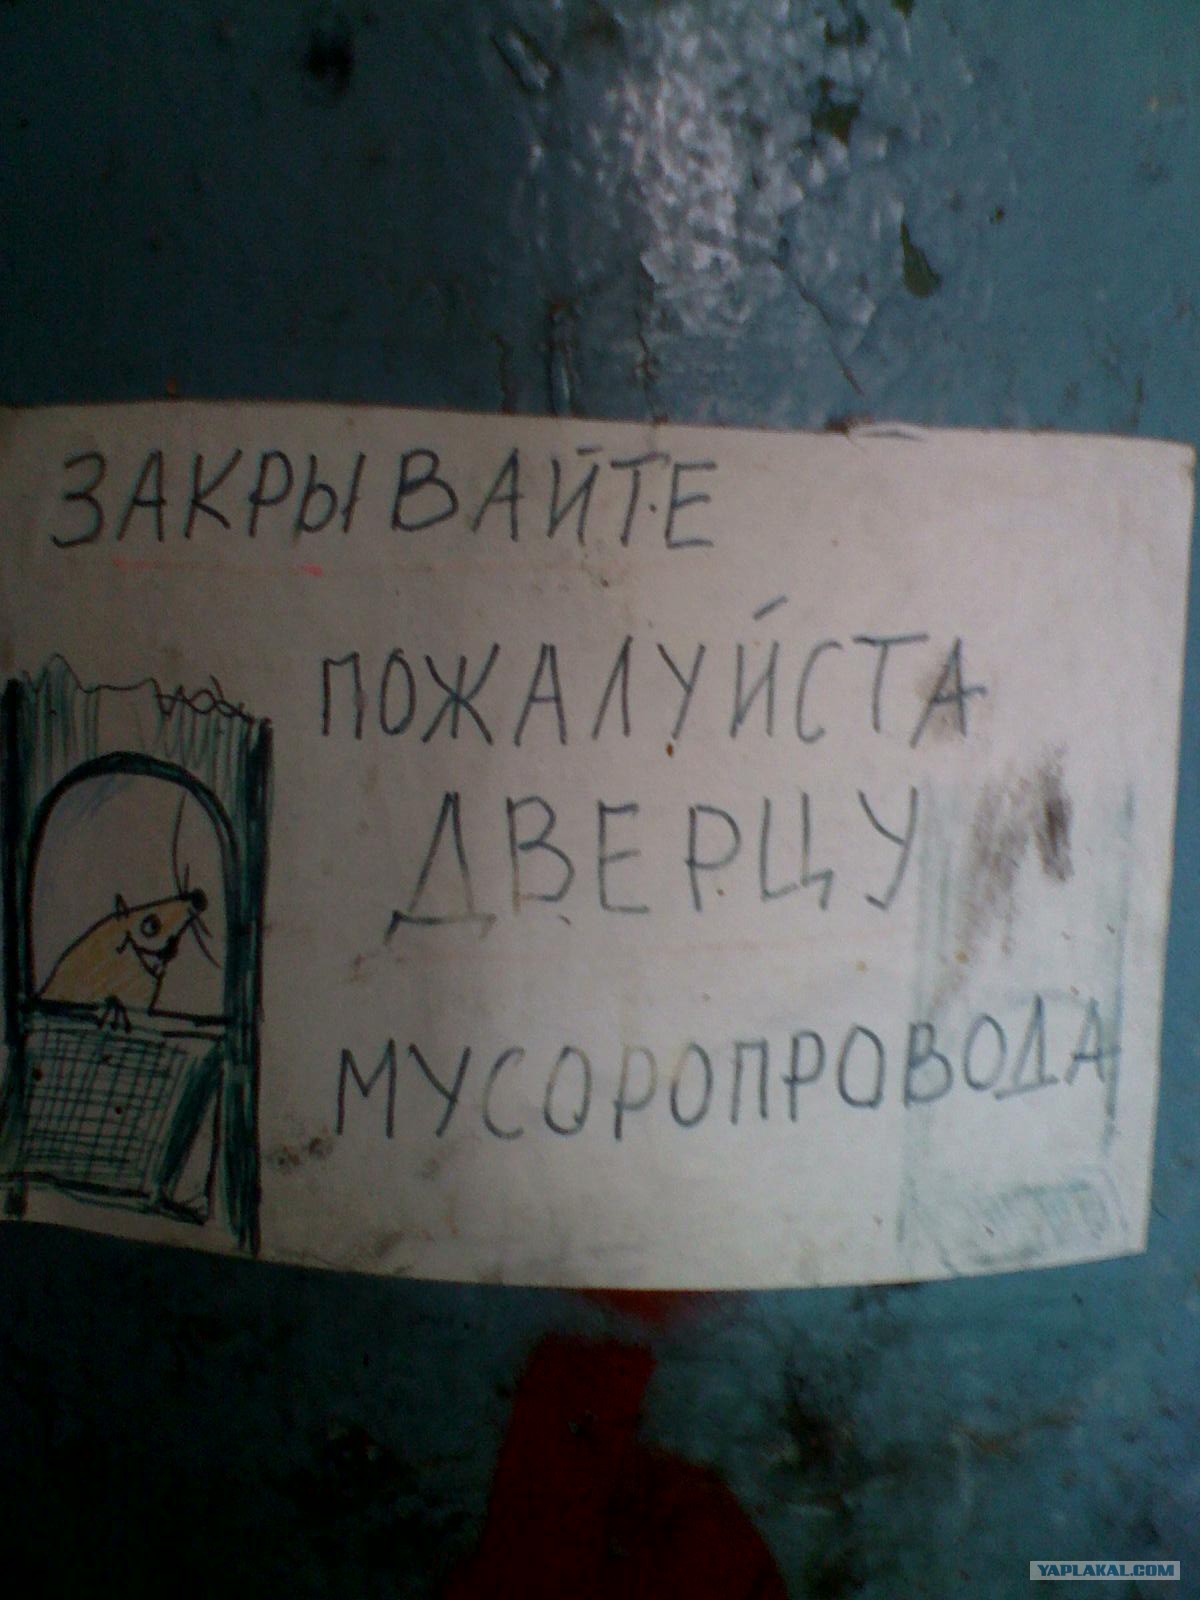 ЗАКРЫВАЙТЕ
ПОЖАЛУЙСТА
ДВЕРЦУ
МУСОРОПРОВОДА
YAPLAKAL.COM